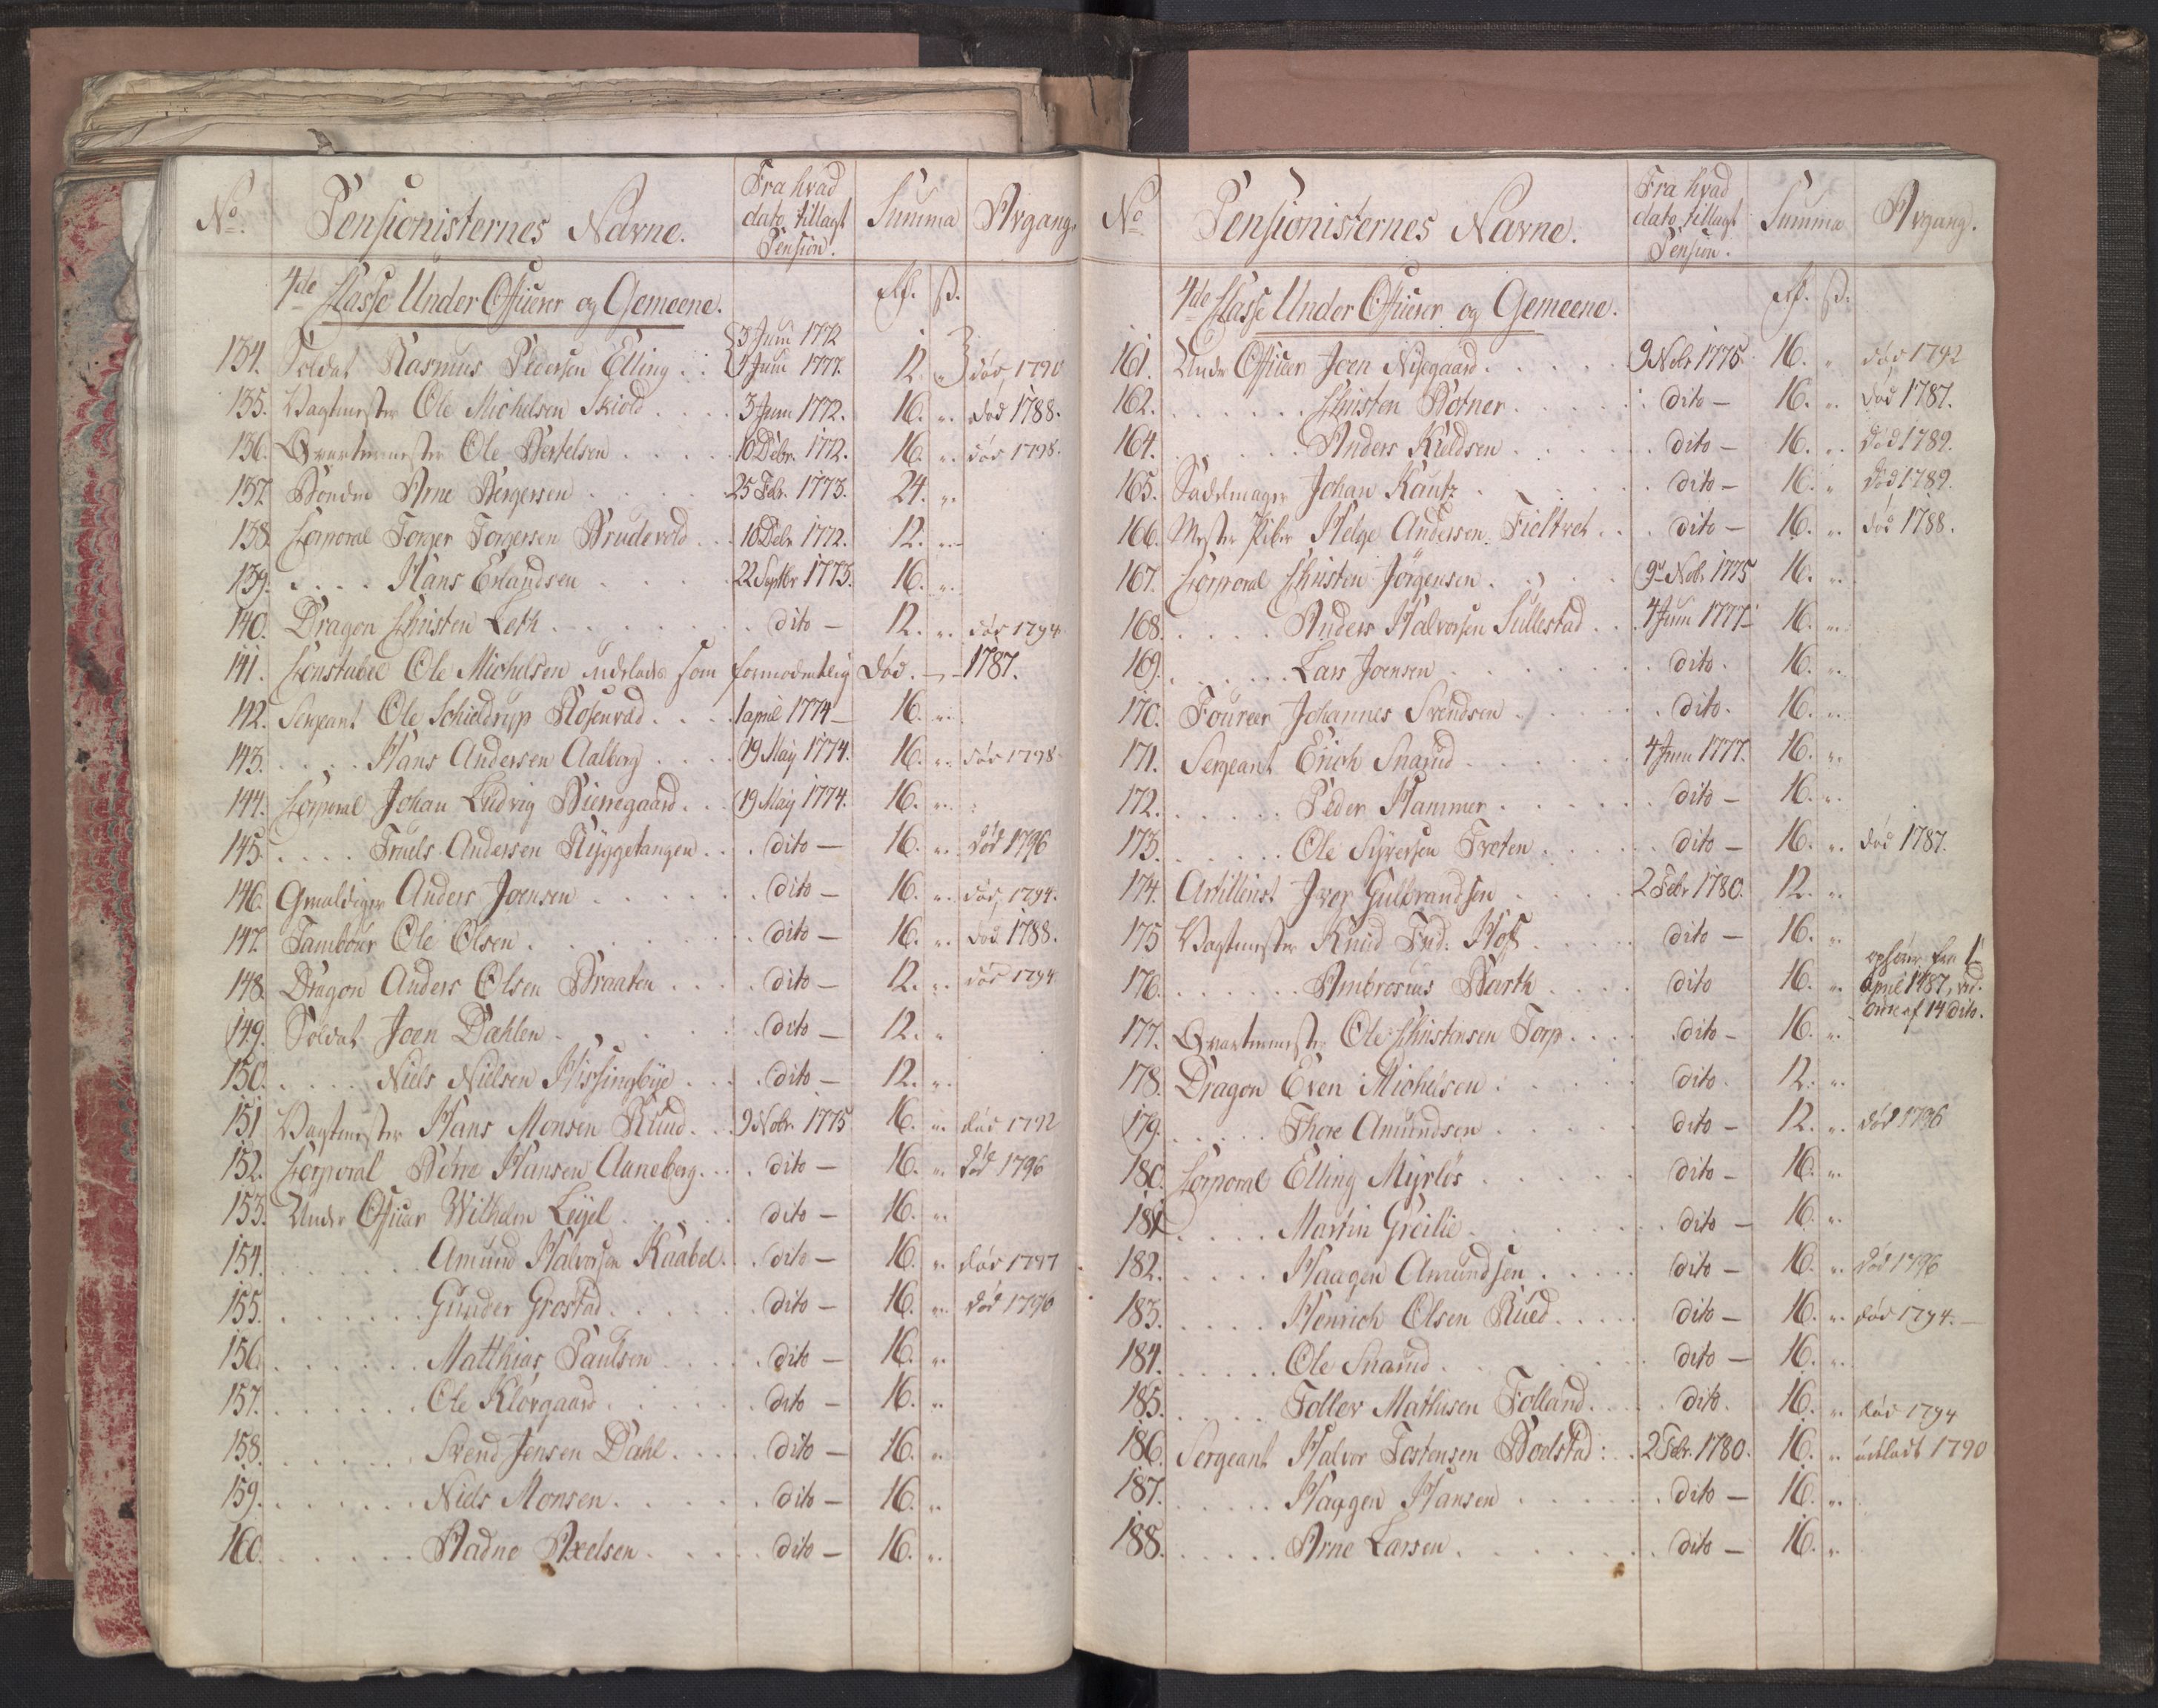 No. Pensionisternes Navne. Fra hvad dato tillagt Pension. Summa Avgang.
4de Classe Under Officerer og Gemeene. Rd. ß.
134. Soldat Rasmus Pedersen Elling . . 3 Juni 1772 4 Juni 1777. 12. " død 1790
135. Vagtmester Ole Michelsen Skiold . . . . 3 Juni 1772. 16. " død 1788.
136. Qvartermester Ole Bertelsen . . . . . 16 Debr. 1772. 16. " død 1798.
137. Bonden Arne Bergersen . . . . 25 Febr. 1773. 24. "
138. Corporal Torger Torgersen Brudevold . . . 16 Debr 1772. 12. "
139. . . . . Hans Erlandsen . . . . . 22 Septbr 1773. 16. "
140. Dragon Christen Leth . . . . . . . . dito — 12. " død 1794
141. Constabel Ole Michelsen udelades som formodentlig død. — 1787.
142. Sergeant Ole Schieldrup Rosenvold . . . . 1 april 1774 — 16. "
143. . . . . Hans Andersen Aalborg . . . . 19 May 1774. 16. " død 1798
144. Corporal Johan Ludvig Bierregaard . . . 19 May 1774. 16. "
145. . . . . Truels Andersen Ryggetangen . . . dito — 16. " død 1796
146. Gevaldiger Anders Joensen . . . . . . dito — 16. " død 1794.
147. Tambour Ole Olsen . . . . . . . . dito — 16. " død 1788.
148. Dragon Anders Olsen Braaten . . . . . dito — 12. " død 1794
149. Soldat Joen Dahlen . . . . . . dito — 12. "
150. . . . . Niels Nielsen Hissingbye . . . . dito — 12. "
151. Vagtmester Hans Monsen Rund . . . 9 Nobr. 1775 16. " død 1792
152. Corporal Børre Hansen Aaneberg . . . . dito — 16. " død 1796
153. Under Officer Wilhelm Leyel . . . . . dito — 16. "
154. . . . . . . Amund Halvorsen Kaabel . . dito — 16. " død 1797
155. . . . . . . Gunder Grostad . . . . . . dito — 16. " død 1796
156. . . . . . . Matthias Paulsen . . . . . dito — 16. "
157. . . . . . . Ole Klovgaard . . . . . . dito — 16. "
158. . . . . . . Svend Jensen Dahl . . . . dito — 16. "
159. . . . . . . Niels Monsen . . . . . . dito — 16. "
160. . . . . . . Aadne Axelsen . . . . . dito — 16. "
No. Pensionisternes Navne. Fra hvad dato tillagt Pension. Summa Avgang.
4de Classe Under Officerer og Gemeene. Rd. ß.
161. Under Officer Joen Nysegaard . . . . . 9 Nobr 1775. 16. " død 1792
162. . . . . . . Christen Botner . . . . . . dito — 16. " død 1787.
164. . . . . . . Anders Kieldsen . . . . . . dito — 16. " død 1789.
165. Sadelmager Johan Kautz . . . . . . dito — 16. " død 1789.
166. Mester Piber Helge Andersen Fieltvet . . . dito — 16. " død 1788.
167. Corporal Christen Jørgensen . . . . 9de Nobr. 1775 16. "
168. . . . . Anders Halvorsen Sullestad . . . 4 Juni 1777. 16. "
169. . . . . . . Lars Joensen . . . . . . . dito. 16. "
170. Foureer Johannes Svendsen . . . . . dito. 16. "
171. Sergeant Erich Snarud . . . . . . 4 Juni 1777. 16. "
172. . . . . . Peder Hammer . . . . . . dito — 16. "
173. . . . . . Ole Syversen Tveten . . . . . dito — 16. " død 1787.
174. Artillerist Iver Gulbrandsen . . . . . 2 Febr 1780. 12. "
175 Vagtmester Knud Frid: Hoff . . . . . dito — 16. "
176. . . . . . . Ambrosius Barth . . . . . dito 16. " ophører fra 1 April 1787, ved. Ordre af 14 dito.
177. Qvartermester Ole Christensen Torp . . . . dito — 16. "
178. Dragon Even Michelsen . . . . . . dito. 12. "
179. . . . . . Thore Amundsen . . . . . . dito — 12. " død 1796
180. Corporal Elling Myrløs . . . . . . dito — 16. "
181. . . . . Martin Greilie . . . . . . . dito — 16. "
182. . . . . . Haagen Amundsen . . . . . dito — 16. " død 1796
183. . . . . Henrich Olsen Rued . . . . . dito — 16. " død 1794. —
184. . . . . . Ole Snarud . . . . . . . dito — 16. "
185. . . . . Tollev Mathisen Tolland . . . . dito. 16. " død 1794
186. Sergeant Halvor Tostensen Boelstad : . . 2 Febr. 1780. 16. " udeladt 1790
187. . . . . . Haagen Hansen . . . . . . dito — 16. "
188. . . . . . Arne Larsen . . . . . . . dito — 16. "